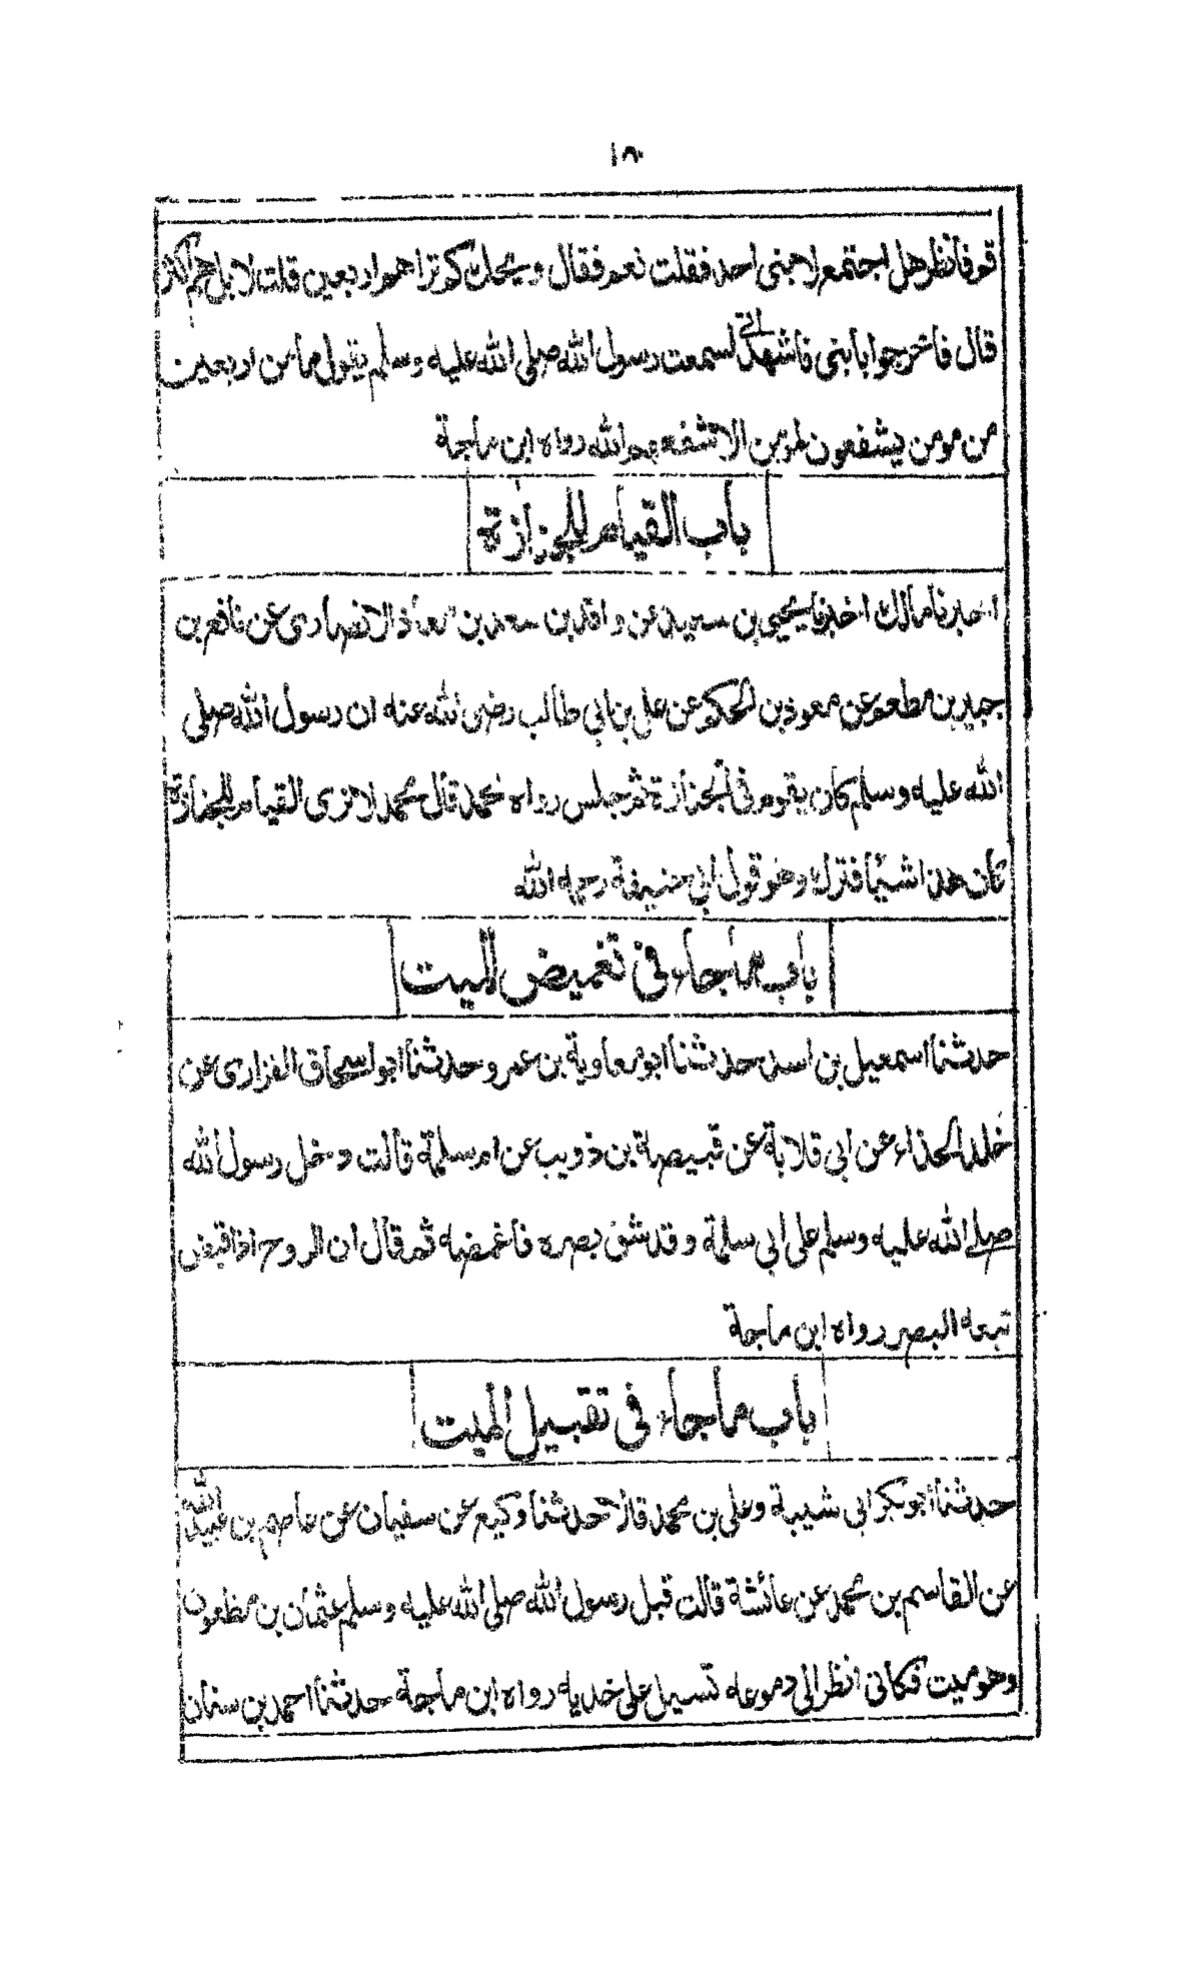 ١٨
قم فانظر هل اجتمع لابنى احد فقلت نعم فقال ويحك كم تراهم اربعين قلت لا بل هم اكثر
قال فاخرجوا بابنى فاشهد انى لسمعت رسول الله صلى الله عليه وسلم يقول ما من اربعين
من مومن يشفعون لمومن الا شفعهم الله رواه ابن ماجة
باب القيام للجنازة
اخبرنا مالك اخبرنا يحيى بن سعيد عن واقد بن سعد بن معاذ الانصارى عن نافع بن
جبير بن مطعم عن معوذ بن الحكم عن على بن ابي طالب رضى الله عنه ان رسول الله صلى
الله عليه وسلم كان يقوم فى الجنازة ثم جلس رواه محمد قال محمد لا نرى القيام للجنازة
كان هذا شيئا فترك وهو قول ابي حنيفة رحمه الله
باب ما جاء فى تغميض الميت
حدثنا اسمعيل بن اسد حدثنا ابو معاوية بن عمرو حدثنا ابو اسحاق الفزارى عن
خلد الحذاء عن ابى قلابة عن قبيصة بن ذويب عن ام سلمة قالت دخل رسول الله
صلے الله عليه وسلم على ابى سلمة وقد شق بصره فاغمضه ثم قال ان الروح اذا قبض
تبعه البصر رواه ابن ماجة
باب ما جاء فى تقبيل الميت
حدثنا ابو بكر ابى شيبة وعلى بن محمد قالا حدثنا وكيع عن سفيان عن عاصم بن عبيد الله
عن القاسم بن محمد عن عائشة قالت قبل رسول الله صلى الله عليه وسلم عثمان بن مظعون
وهو ميت فكانى انظر الى دموعه تسيل على خديه رواه ابن ماجة حدثنا احمد بن سنان